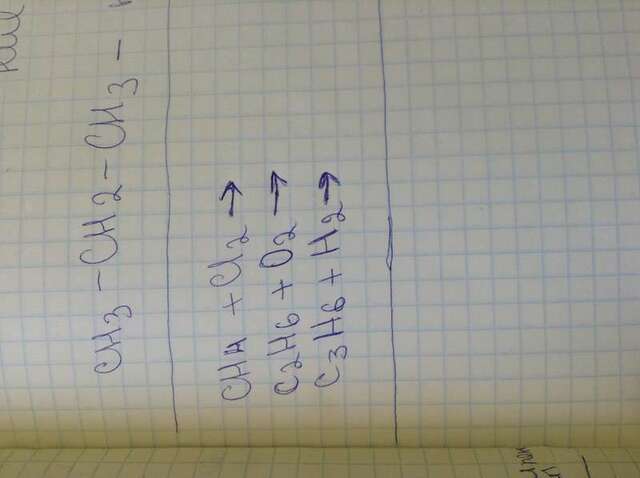 CH3-CH2-CH3-
CH4 + Cl2 →
C2H6 + O2 →
C3H6 + H2 →